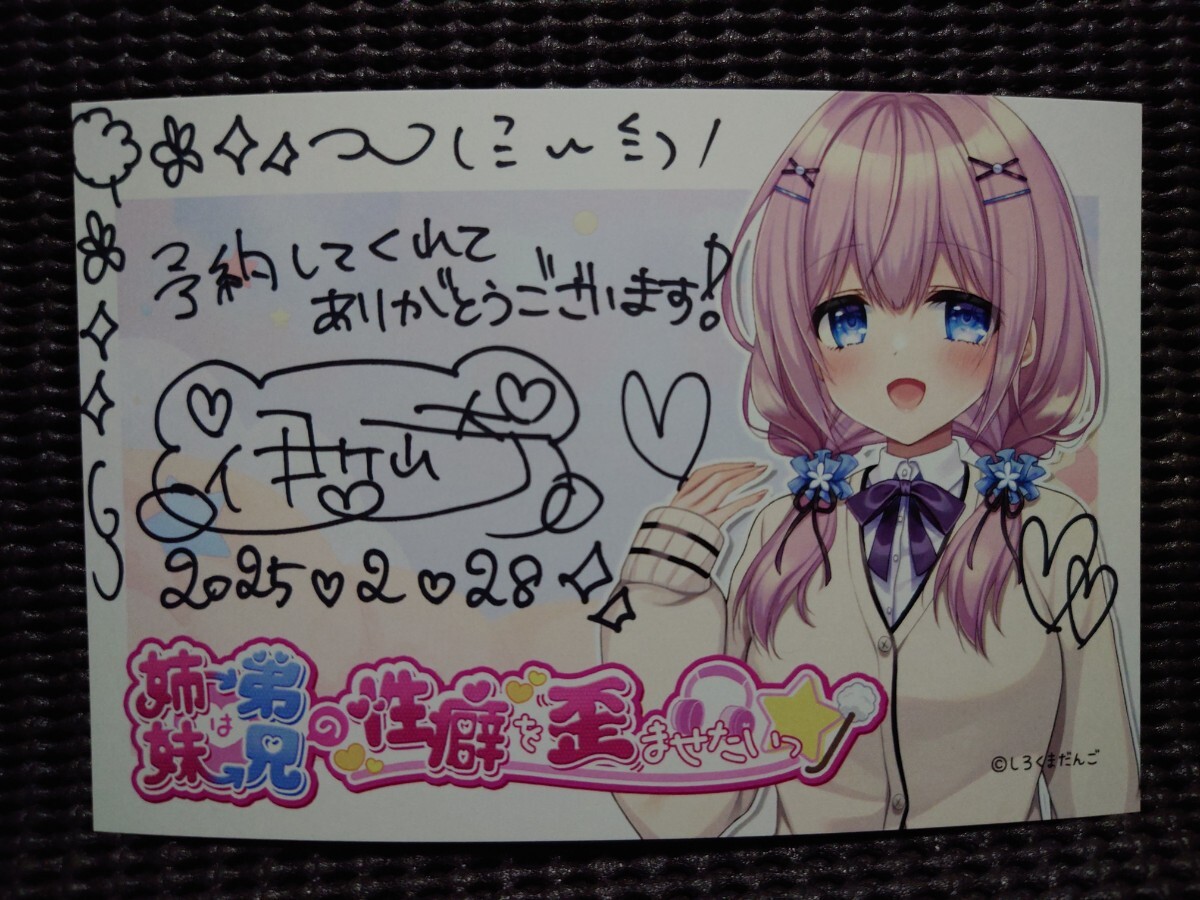 予約してくれて
ありがとうございます!
2025♡2♡28
姉妹は弟兄の性癖を歪ませたいっ
©しろくまだんご